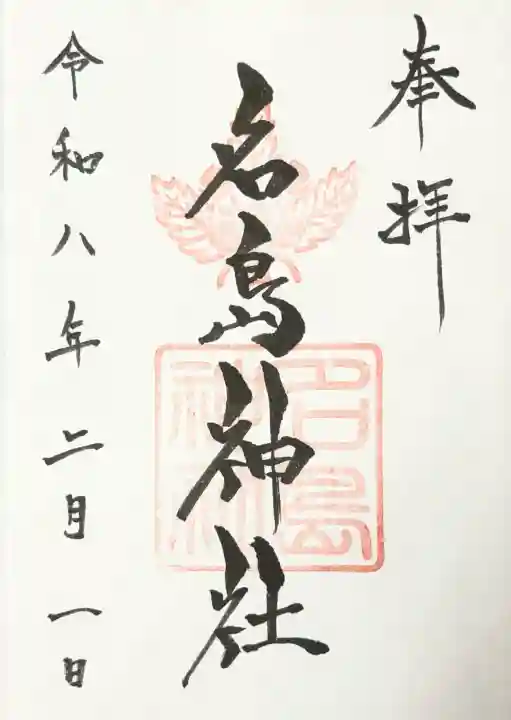 奉拝
名島神社
名島
神社
令和八年二月一日